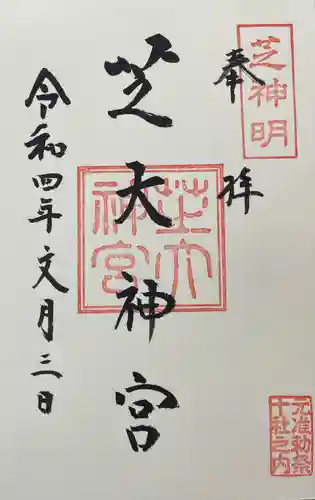 芝神明
奉拝
芝大神宮
芝大神宮
令和四年文月三日
元准勅祭
十社之内